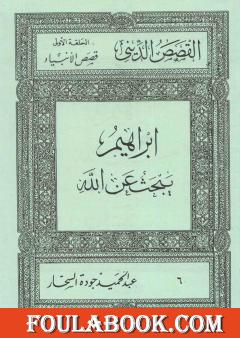 القصص الدينى
الحلقة الأولى
قصص الأنبياء
ابراهيم
يبحث عن الله
٦
عبد الحميد جودة السحار
FOULABOOK.COM